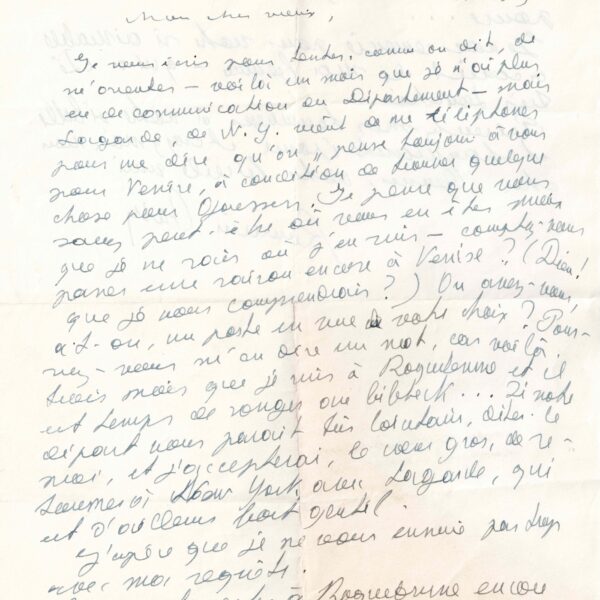 Mon cher vieux,
Je vous écris pour tenter, comme on dit, de
m'orienter – voilà un mois que je n'ai plus
eu de communication du Département – mais
Lagarde, de N.Y. vient de me téléphoner
pour me dire qu'on „pense toujours à vous
pour Venise, à condition de trouver quelque
chose pour Guesser. Je pense que vous
savez peut-être où vous en êtes mieux
que je ne sais où j'en suis – comptez-vous
passer une saison encore à Venise? (Dieu!
que je vous comprendrais?) Ou avez-vous,
a-t-on, un poste en vue de votre choix? Pour-
riez-vous m'en dire un mot, car voilà
trois mois que je suis à Roquebrune et il
est temps de songer au bifteck... Si votre
départ vous paraît très lointain, dites-le
moi, et j'accepterai, le cœur gros, de re-
tourner à New York avec Lagarde, qui
est d'ailleurs fort gentil.
J'espère que je ne vous ennuie pas trop
avec ma requête.
à Roquebrune encore